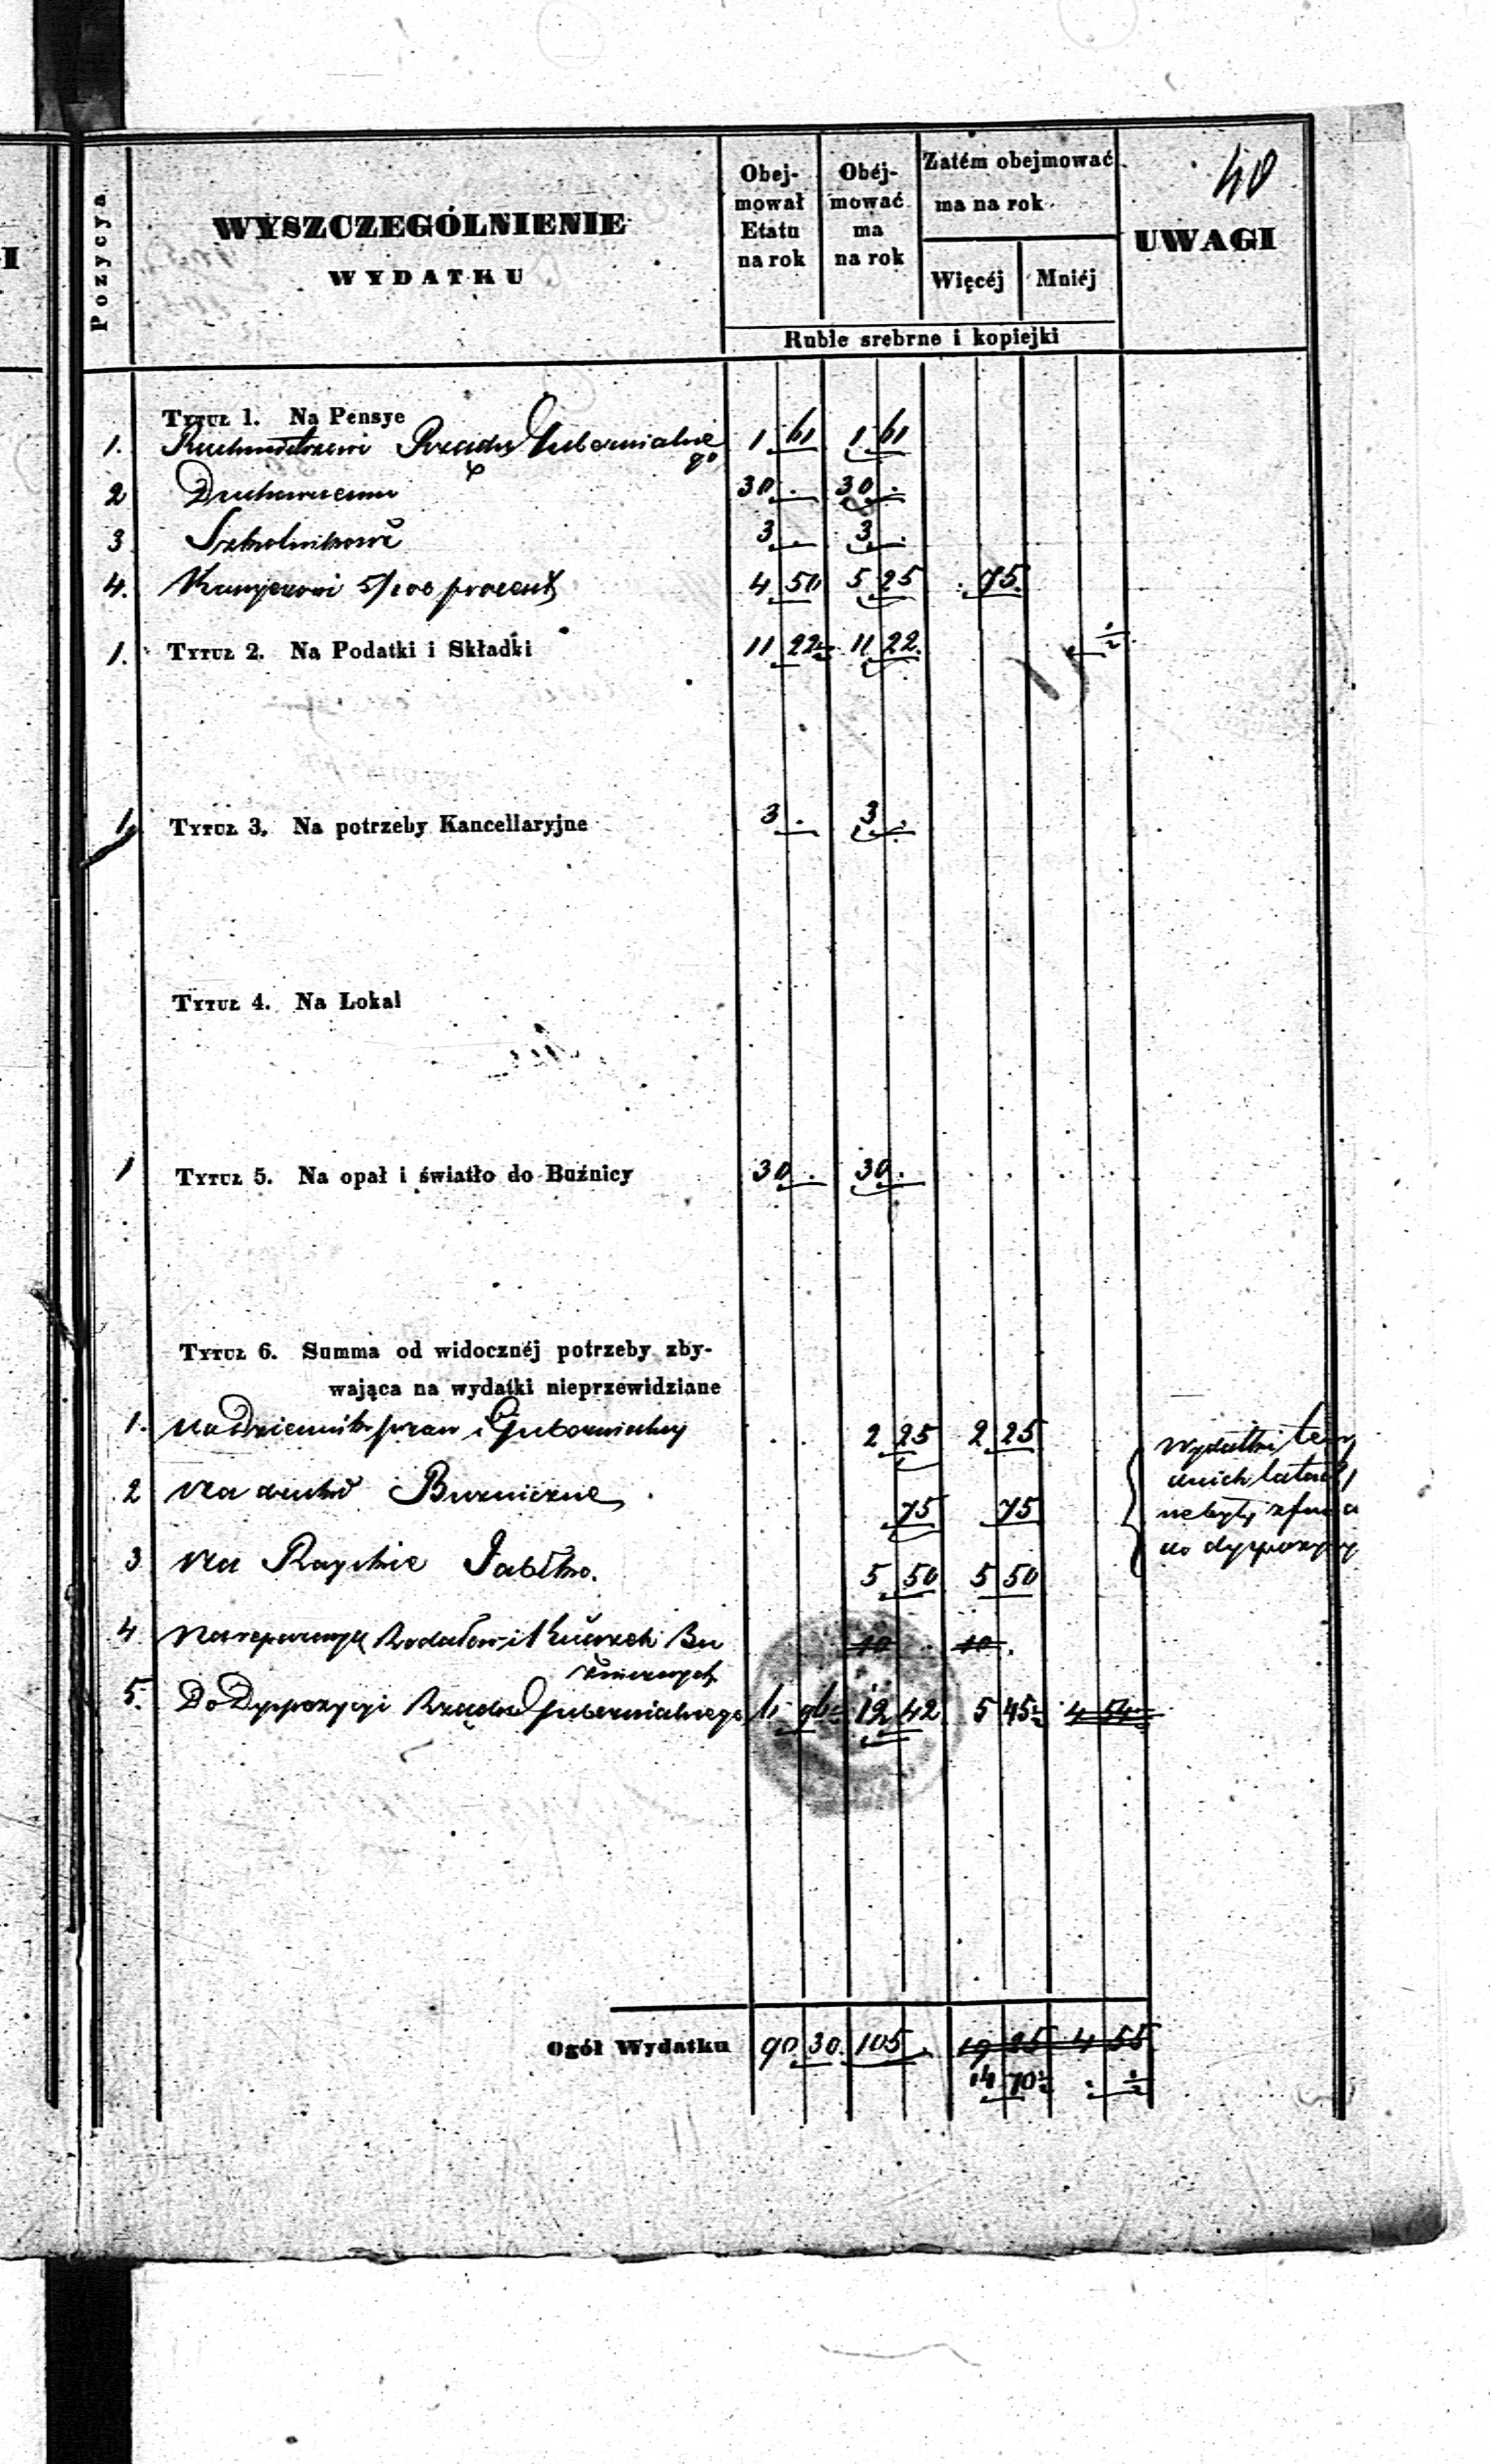 40
Pozycya
WYSZCZEGÓLNIENIE
WYDATKU
Obej-
mował
Etatu
na rok
Obéj-
mować
ma
na rok
Zatém obejmować
ma na rok
Więcéj Mniéj
Ruble srebrne i kopiejki
UWAGI
Tytuł 1. Na Pensye
1. Rachmistrzowi Rządu Gubernialne 1 61 1 61
go
2 Duchownemu 30 . 30 .
3 Szkolnikowi 3 . 3 .
4. Kassyerowi 5/100 procent 4 50 5 25 . 75.
1. Tytuł 2. Na Podatki i Składki 11 22½ 11 22. ½
1 Tytuł 3. Na potrzeby Kancellaryjne 3 . 3 .
Tytuł 4. Na Lokal
1 Tytuł 5. Na opał i światło do Buźnicy 30 . 30 .
Tytuł 6. Summa od widocznéj potrzeby zby-
wająca na wydatki nieprzewidziane
1. Na Dziennik praw i Gubernialny . . 2 25 2 25
2 Na Buzniczne 75 75
3 Na Rayskie Jabłko. 5 50 5 50
4 Na reperacyą Rodałów i Bu 10 10 .
źnicznych
5. Do Dyspozycyi Rządu Gubernialnego 6 96½ 12 42 5 45½ 4 54½
Wydatki
latach
do dyspozycyi
Ogół Wydatku 90 30. 105 . 19 25 4 55
14 70½ . ½